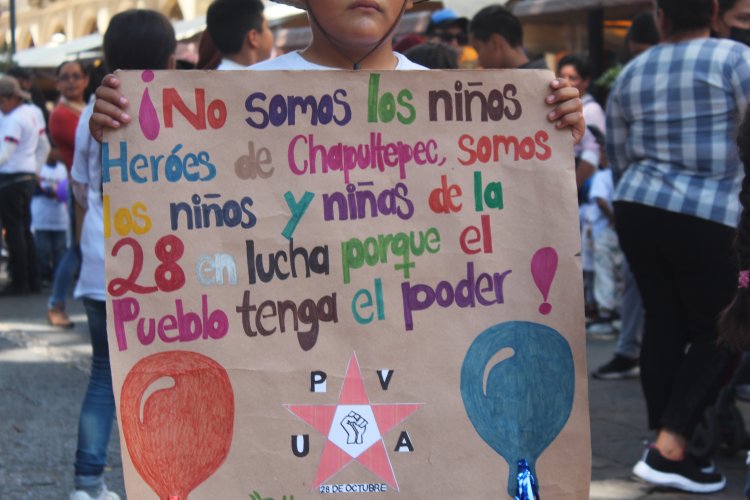 ¡No somos los niños
Heróes de Chapultepec, somos
los niños y niñas de la
28 en lucha porque el
Pueblo tenga el poder!
P V
U A
28 DE OCTUBRE